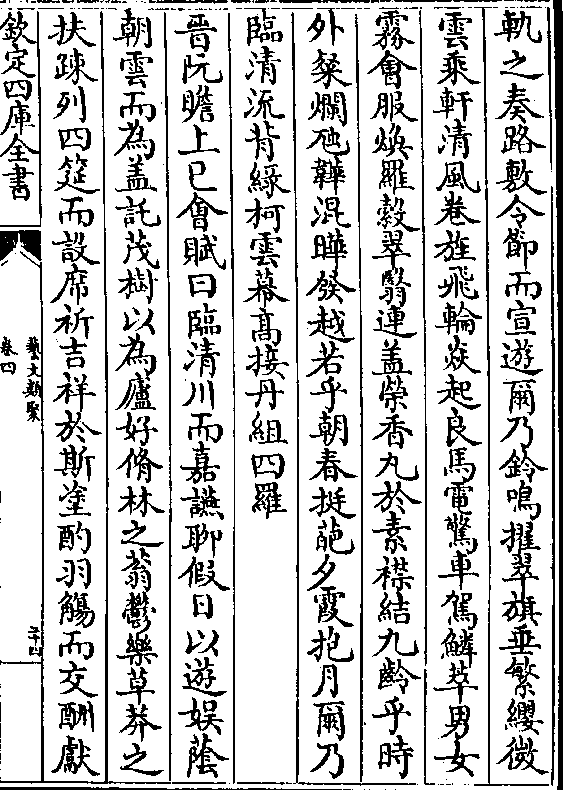 軌之奏路敷令節而宣遊爾乃鈴鳴擢翠旗垂繁纓微
雲乘軒清風卷旌飛輪焱起良馬電驚車駕鱗萃男女
霧會服煥羅縠翠翳連盖榮香丸於素襟結九齡乎時
外粲爛虵韡混曄發越若乎朝春挺葩夕霞抱月爾乃
臨清流背綠柯雲幕髙接丹組四羅
晉阮瞻上巳會賦曰臨清川而嘉讌聊假日以遊娱蔭
朝雲而為盖託茂樹以為廬好脩林之蓊鬱樂草莽之
扶踈列四筵而設席祈吉祥於斯塗酌羽觴而交酬獻
欽定四庫全書
藝文類聚
卷四
三十四